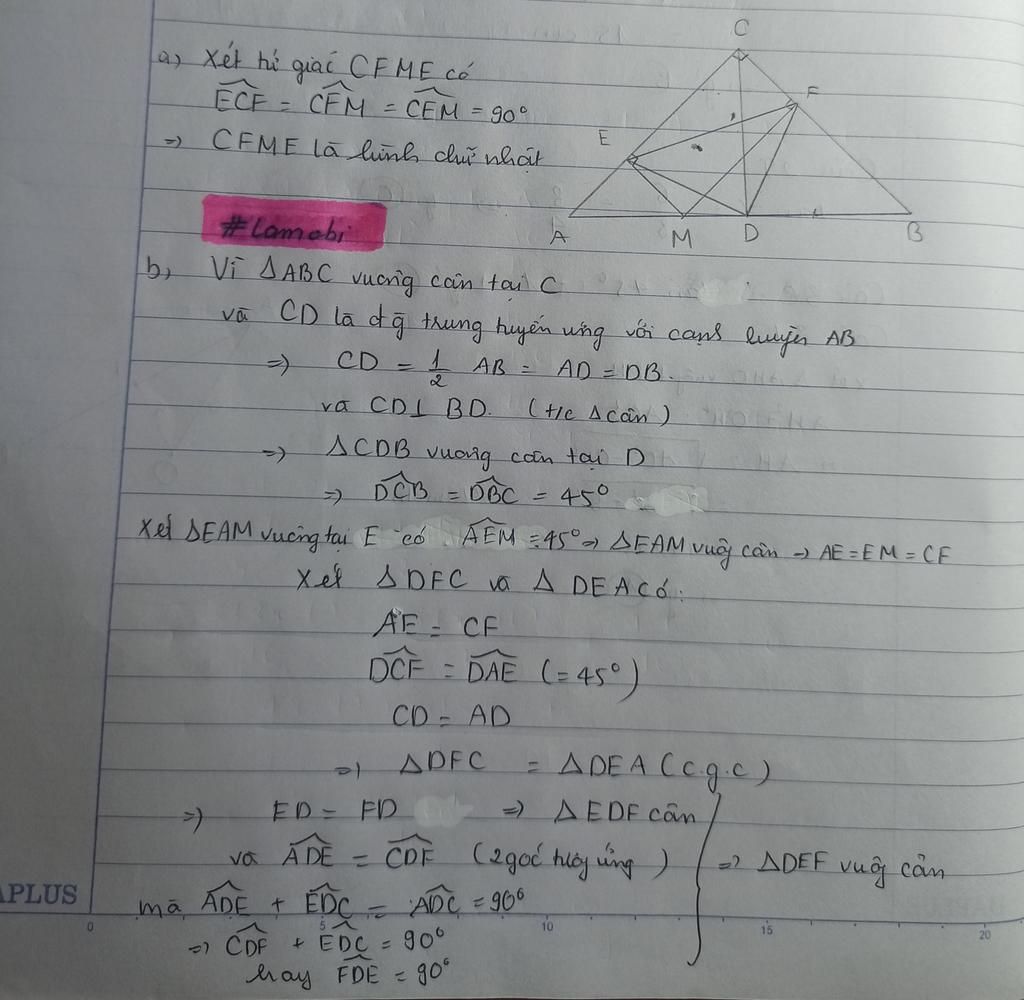 a, Xét tứ giác CFME có
ECF = CFM = CEM = 90°
=> CFME là hình chữ nhật
C
F
E
A
M
D
B
#Lamobi
b, Vì ΔABC vuông cân tại C
và CD là đg trung tuyến ứng với cạnh huyền AB
=> CD = 1/2 AB = AD = DB.
và CD⊥ BD. (t/c Δcân)
=> ΔCDB vuông cân tại D
=> DCB = DBC = 45°
Xét ΔEAM vuông tại E có AEM = 45° => ΔEAM vuôg cân -> AE = EM = CF
Xét ΔDFC và Δ DEA có:
AE = CF
DCF = DAE (= 45°)
CD = AD
=> ΔDFC = ΔDEA (c.g.c)
=> ED = FD => ΔEDF cân
và ADE = CDF (2góc tương ứng) => ΔDEF vuôg cân
mà ADE + EDC = ADC = 90°
=> CDF + EDC = 90°
hay FDE = 90°
APLUS
0 5 10 15 20